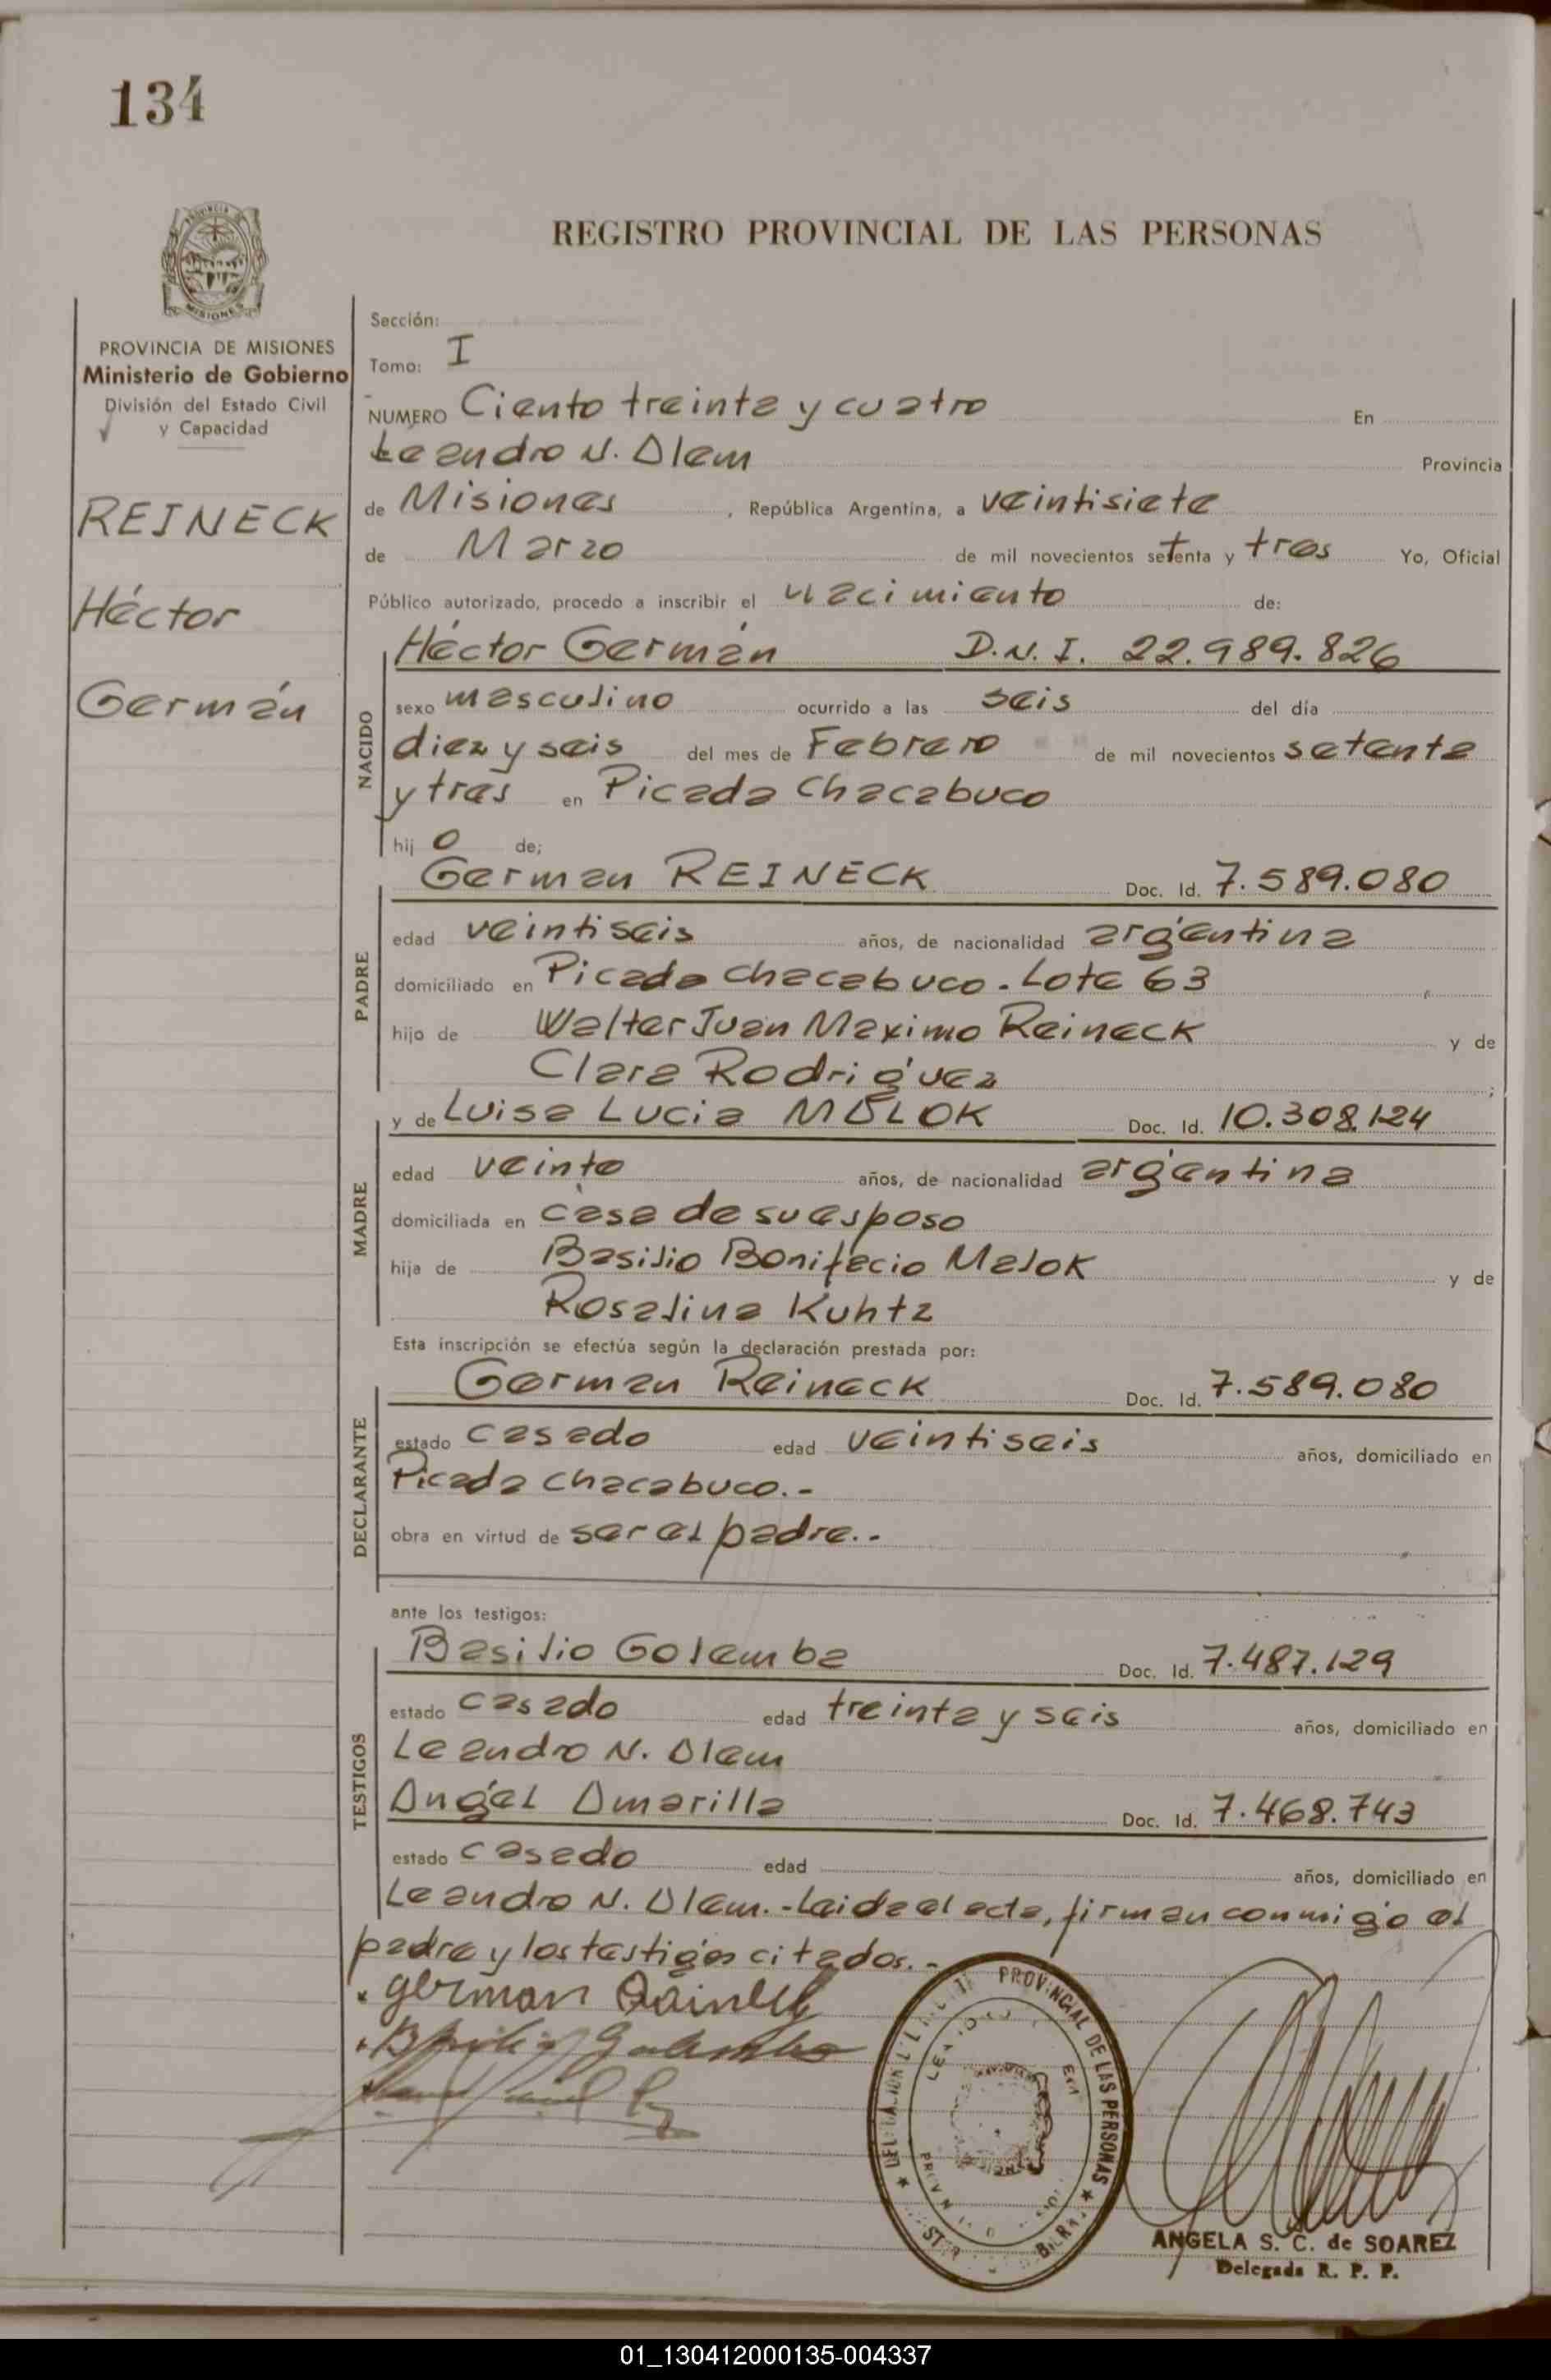 134
REGISTRO PROVINCIAL DE LAS PERSONAS
PROVINCIA DE MISIONES
Ministerio de Gobierno
División del Estado Civil
y Capacidad
REINECK
Héctor
Germán
Sección:
Tomo: I
NUMERO Ciento treinta y cuatro En
Leandro N. Alem Provincia
de Misiones, República Argentina, a veintisiete
de Marzo de mil novecientos setenta y tres Yo, Oficial
Público autorizado, procedo a inscribir el nacimiento de:
NACIDO
Héctor Germán D.N.I. 22.989.826
sexo masculino ocurrido a las seis del día
diez y seis del mes de Febrero de mil novecientos setenta
y tres en Picada Chacabuco
hijo de;
PADRE
German REINECK Doc. Id. 7.589.080
edad veintiseis años, de nacionalidad argentina
domiciliado en Picada Chacabuco. Lote 63
hijo de Walter Juan Maximo Reineck y de
Clara Rodriguez;
MADRE
y de Luisa Lucia MALOK Doc. Id. 10.308.124
edad veinte años, de nacionalidad argentina
domiciliada en casa de su esposo
hija de Basilio Bonifacio Malok y de
Rosalina Kuhtz
Esta inscripción se efectúa según la declaración prestada por:
DECLARANTE
German Reineck Doc. Id. 7.589.080
estado casado edad veintiseis años, domiciliado en
Picada Chacabuco.-
obra en virtud de ser el padre.-
ante los testigos:
TESTIGOS
Basilio Golemba Doc. Id. 7.487.129
estado casado edad treinta y seis años, domiciliado en
Leandro N. Alem
Angel Amarilla Doc. Id. 7.468.743
estado casado edad años, domiciliado en
Leandro N. Alem.- Leida el acta, firman conmigo el
padre y los testigos citados.-
german Reineck
PROVINCIAL DE LAS PERSONAS
ANGELA S. C. de SOAREZ
Delegada R. P. P.
01_130412000135-004337